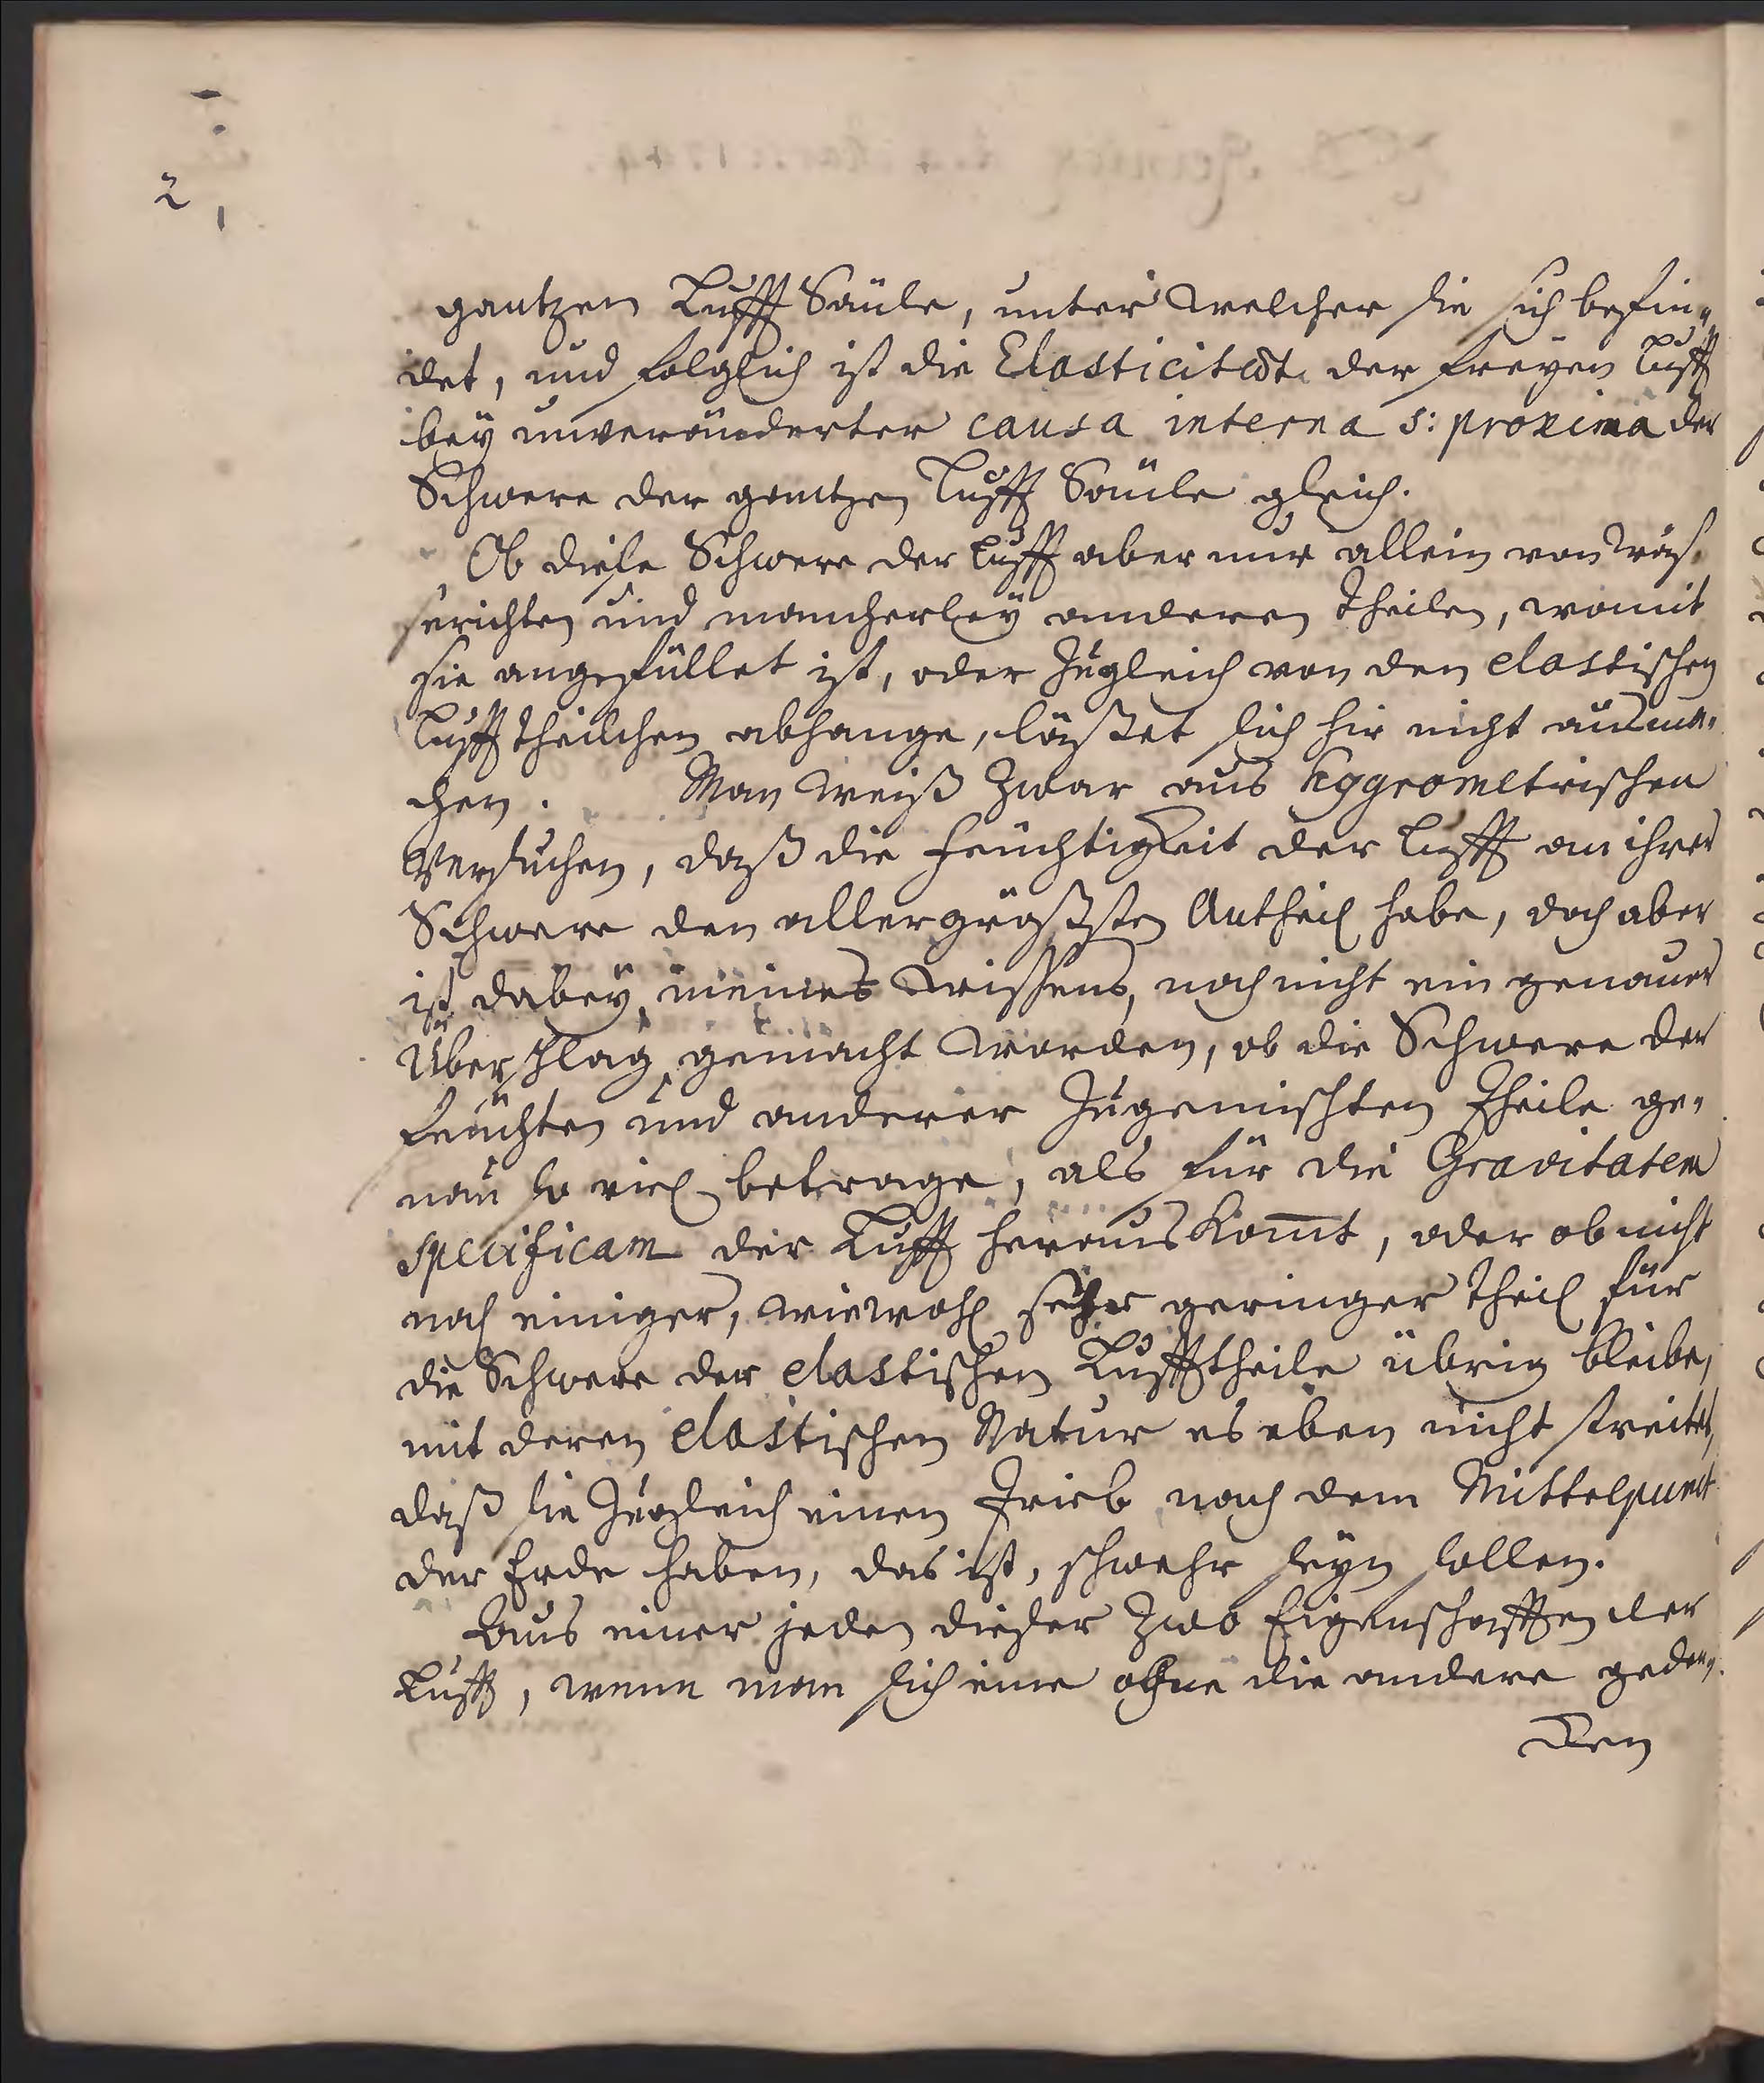 2
gantzen Lufft Säule, unter welcher sie sich befin„
det, und folglich ist die Elasticitæt der freyen Lufft
bey unveränderter causa interna s: proxima der
Schwere der gantzen Lufft Säule gleich.
Ob diese Schwere der Lufft aber nur allein von wäs„
serichten und mancherley anderen Theilen, womit
sie angefüllet ist, oder zugleich von den elastischen
Luffttheilchen abhange, läßet sich hir nicht ausma„
chen. Man weiß zwar aus hygrometrischen
Versuchen, daß die Feuchtigkeit der Lufft an ihrer
Schwere den allergrößsten Antheil habe, doch aber
ist dabey, meines Wissens, noch nicht ein genauer
Überschlag gemacht worden, ob die Schwere der
feuchten und anderer zugemischten Theile ge„
nau so viel betrage, als für die Gravitatem
specificam der Lufft herauskom̅t, oder ob nicht
noch einiger, wiewohl sehr geringer Theil für
die Schwere der elastischen Luffttheile übrig bleibe,
mit deren elastischen Natur es eben nicht streitet,
daß sie zugleich einen Trieb nach dem Mittelpunct
der Erde haben, das ist, schwehr seyn sollen.
Aus einer jeden dieser zwo Eigenschafften der
Lufft, wenn man sich eine ohne die andere geden„
ken